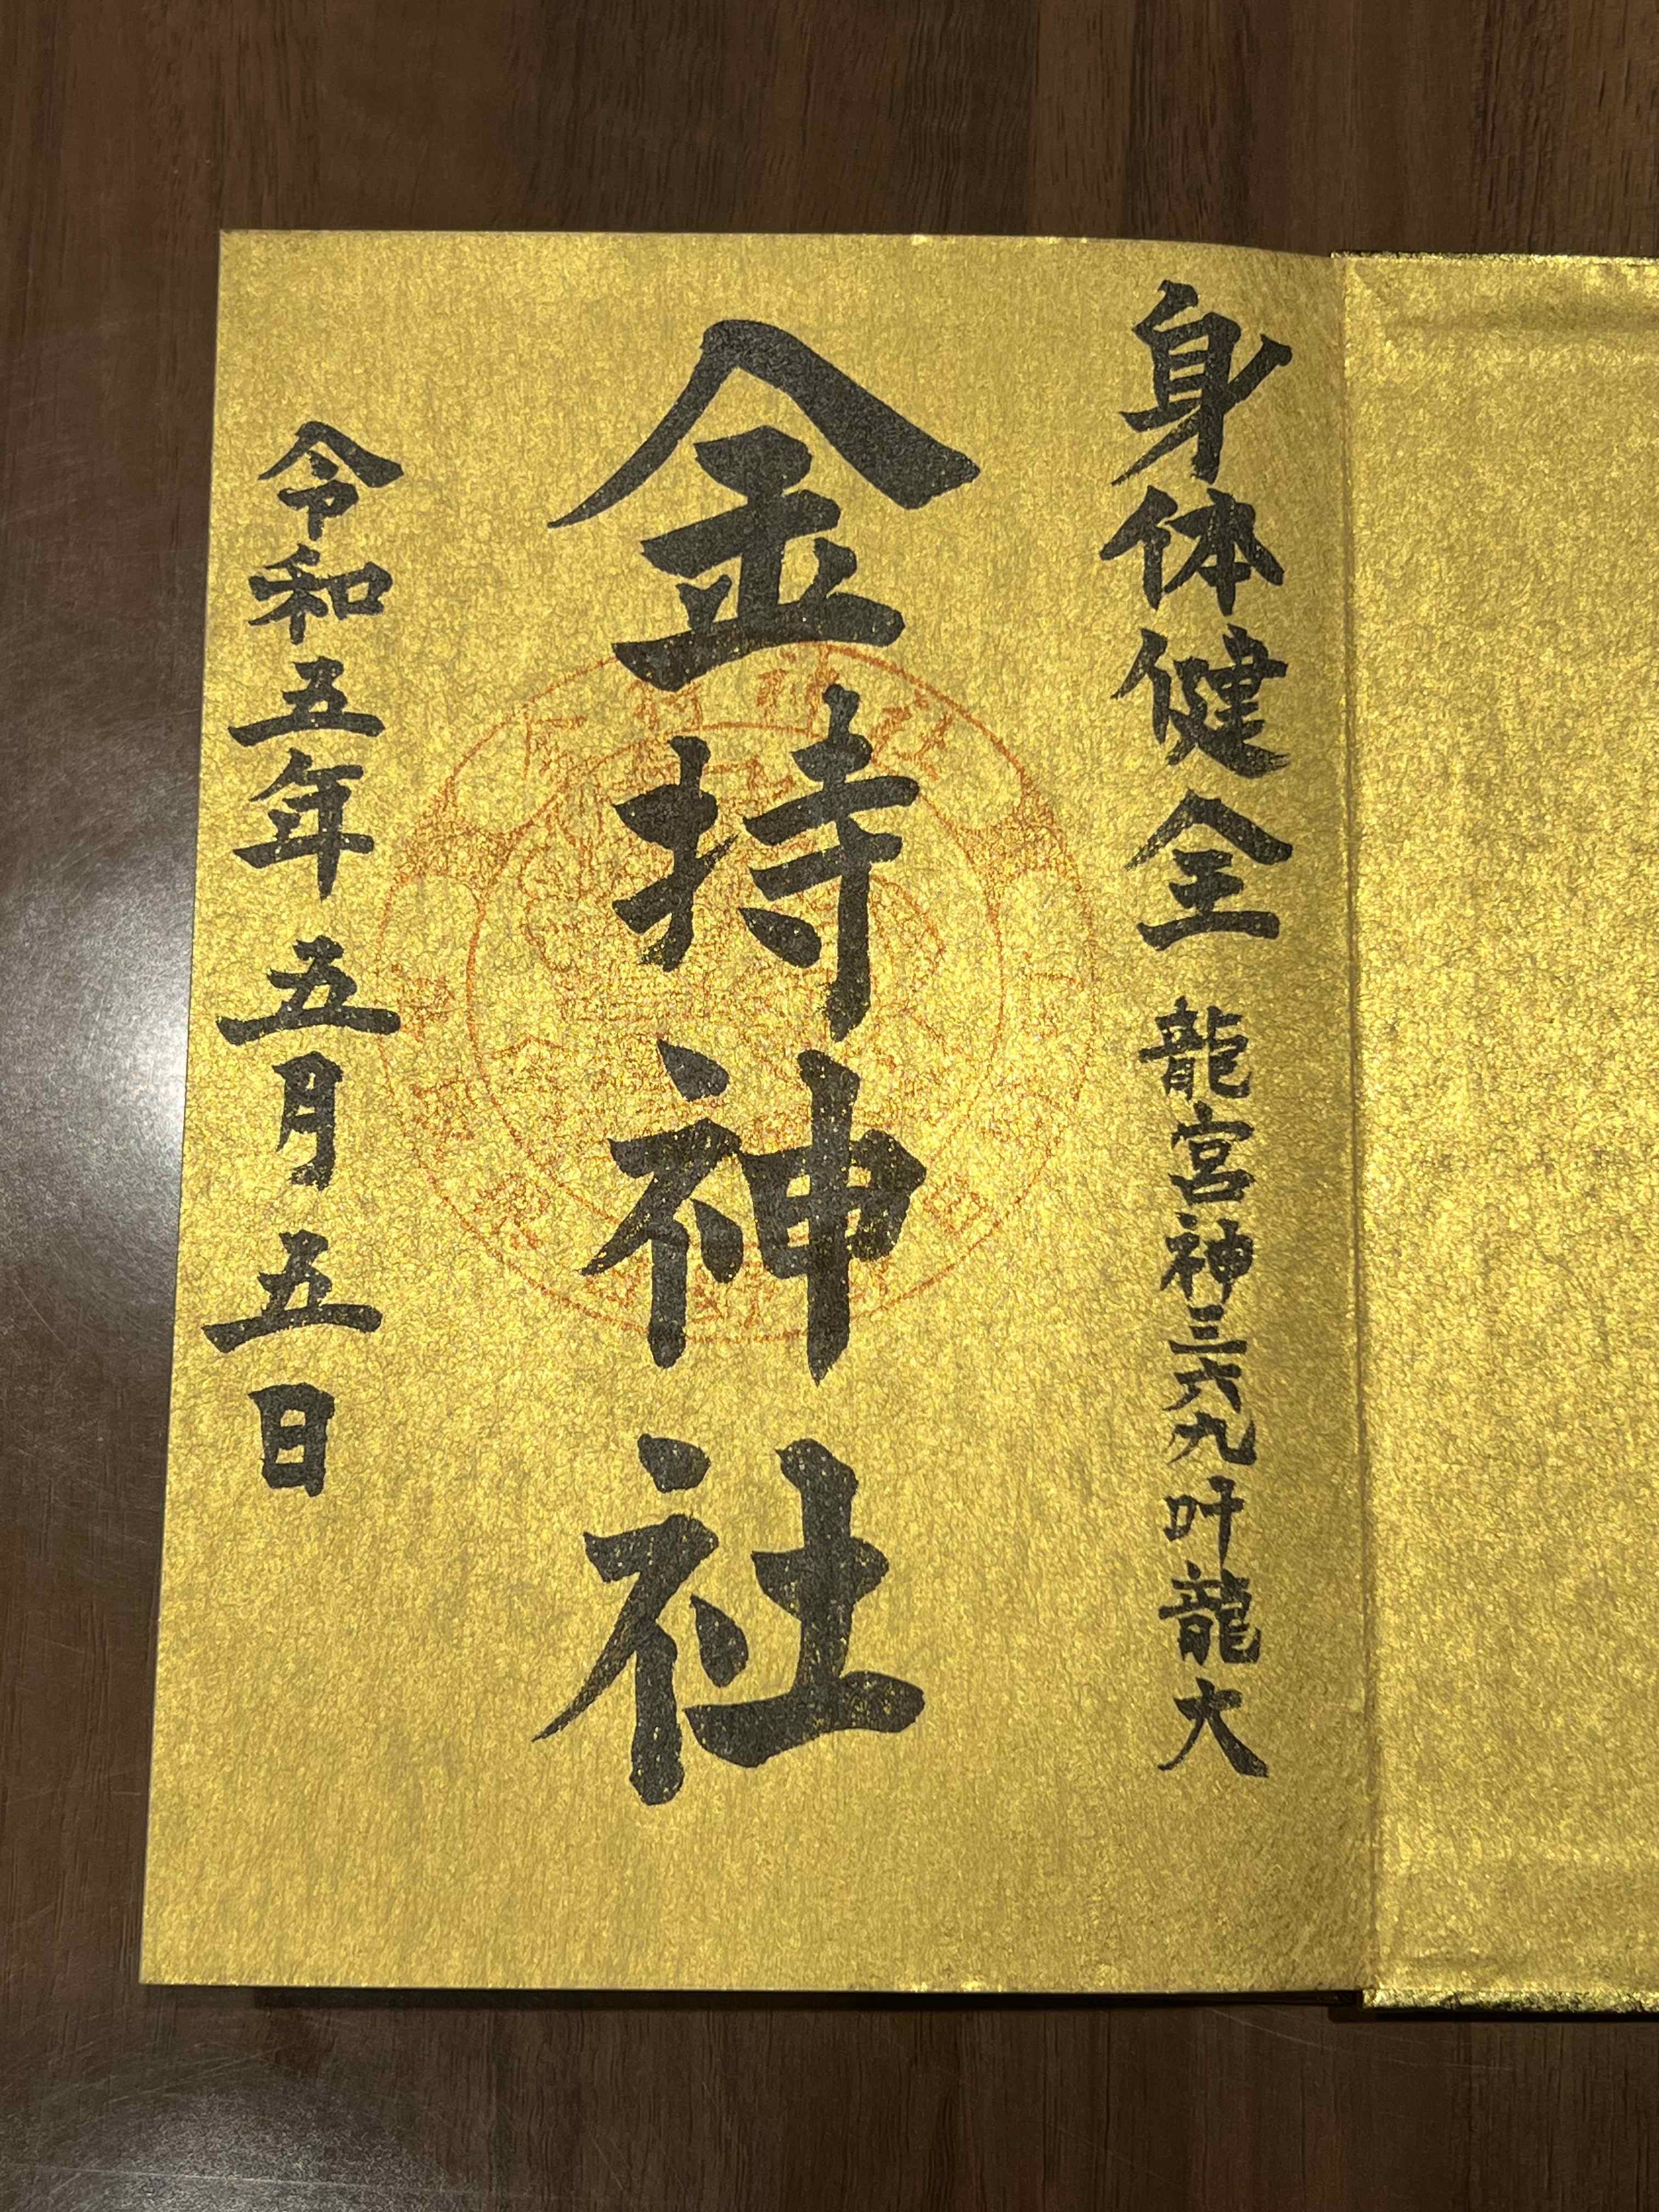 身体健全 龍宮神三六九叶龍大
金持神社
令和五年五月五日